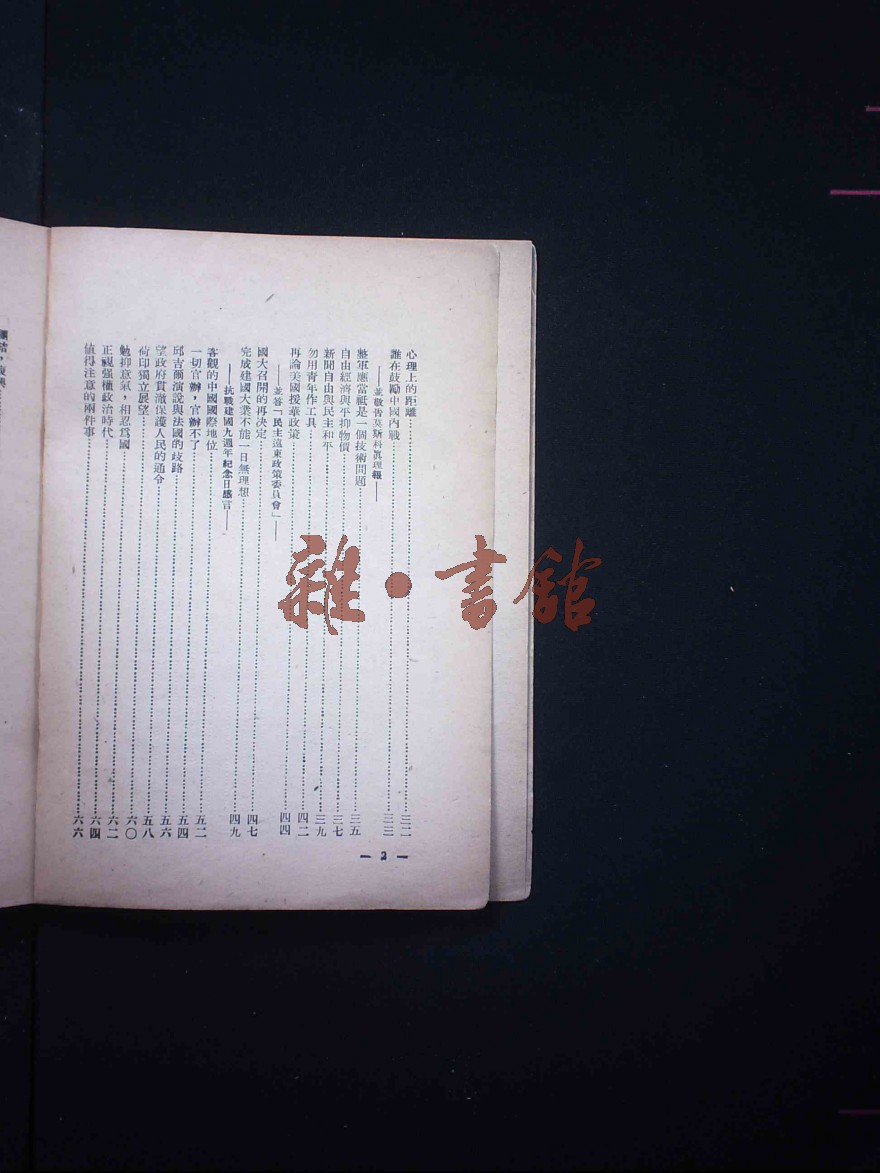 心理上的距離……三二
誰在鼓勵中國內戰……三三
——並敬告莫斯科眞理報——
整軍應當祗是一個技術問題……三五
自由經濟與平抑物價……三七
新聞自由與民主和平……三九
勿用青年作工具……四二
再論美國援華政策……四四
——並答「民主遠東政策委員會」——
國大召開的再決定……四七
完成建國大業不能一日無理想……四九
——抗戰建國九週年紀念日感言——
客觀的中國國際地位……五二
一切官辦，官辦不了……五四
邱吉爾演說與法國的歧路……五六
望政府貫澈保護人民的通令……五八
荷印獨立展望……六〇
勉抑意氣，相忍爲國……六二
正視强權政治時代……六四
值得注意的兩件事……六六
— 2 —
雜·書館